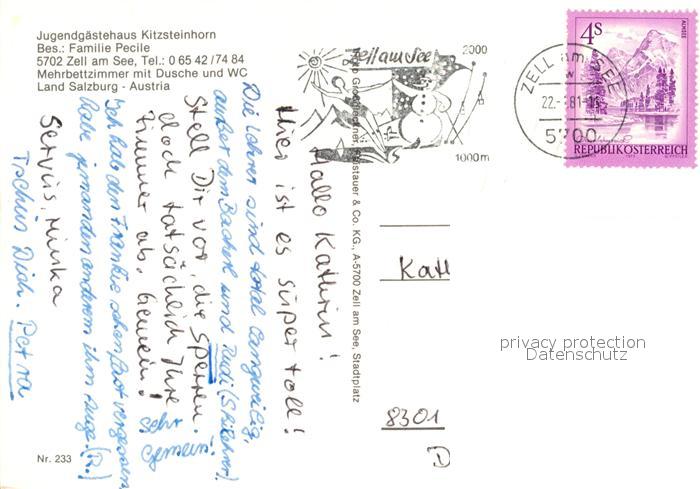 Jugendgästehaus Kitzsteinhorn
Bes.: Familie Pecile
5702 Zell am See, Tel.: 0 65 42 / 74 84
Mehrbettzimmer mit Dusche und WC
Land Salzburg - Austria
Hallo Kathrin!
Hier ist es super toll!
Die Lehrer sind total langweilig,
außer dem Bacherl und Rudi (Skilehrer).
Stell Dir vor, die sperren
doch tatsächlich Ihre
Zimmer ab. Gemein!
Sehr
gemein!
Ich hab den Frankie schon fast vergessen,
habe jemanden anderem im Auge. (R.)
Servus, Minka
Tschüs Dich. Petra
Nr. 233
& Co. KG., A-5700 Zell am See, Stadtplatz
Zell am See
2000
1000m
ZELL am SEE
22.-
81-
5700
4S
ALMSEE
REPUBLIK ÖSTERREICH
Kath
8301
D
privacy protection
Datenschutz